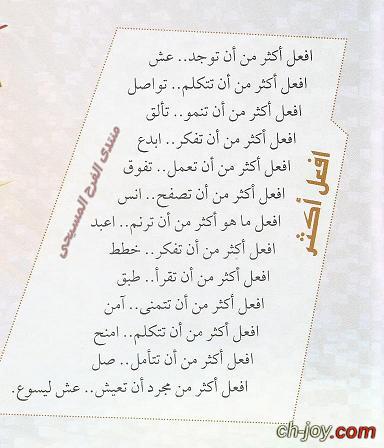 افعل أكثر
افعل أكثر من أن توجد.. عش
افعل أكثر من أن تتكلم.. تواصل
افعل أكثر من أن تنمو.. تألق
افعل أكثر من أن تفكر.. ابدع
افعل أكثر من أن تعمل.. تفوق
افعل أكثر من أن تصفح.. انس
افعل ما هو أكثر من أن ترنم.. اعبد
افعل أكثر من أن تفكر.. خطط
افعل أكثر من أن تقرأ.. طبق
افعل أكثر من أن تتمنى.. آمن
افعل أكثر من أن تتكلم.. امنح
افعل أكثر من أن تتأمل.. صل
افعل أكثر من مجرد أن تعيش.. عش ليسوع.
منتدى الفرح المسيحى
ch-joy.com